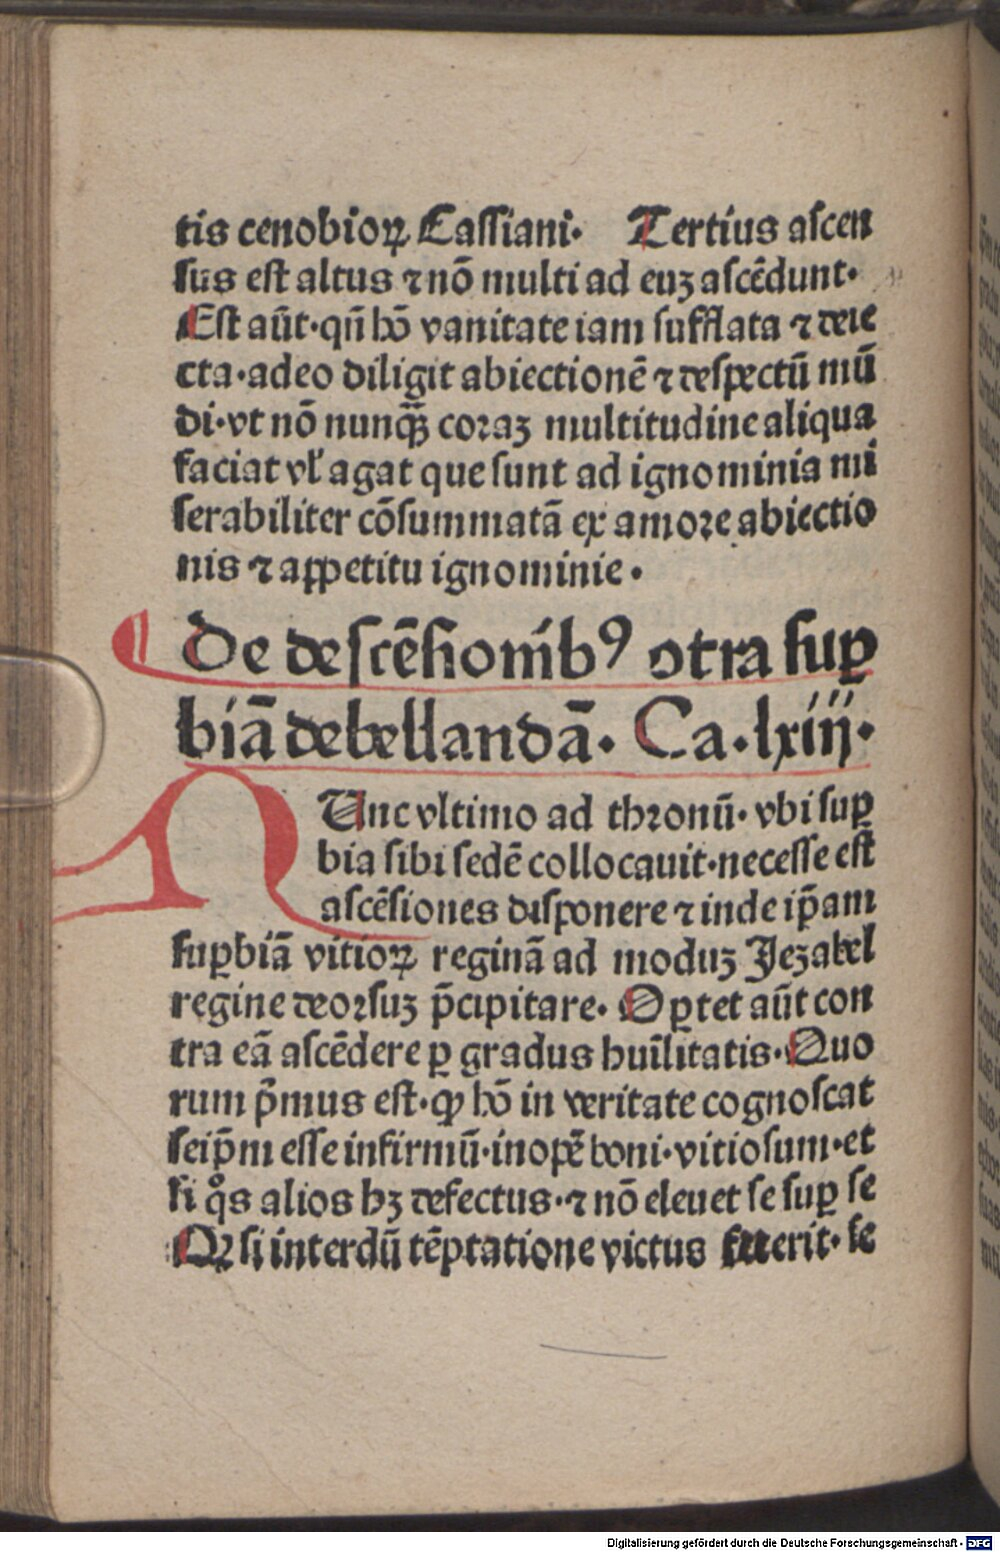 tis cenobioꝝ Cassiani. Tertius ascen
sus est altus ⁊ nō multi ad euꝫ ascēdunt.
Est aūt.qn̄ hō vanitate iam sufflata ⁊ deie
cta.adeo diligit abiectionē ⁊ despectū mū
di.vt nō nunqꝫ̄ coraꝫ multitudine aliqua
faciat vl̓ agat que sunt ad ignominia mi
serabiliter cōsummatā ex amore abiectio
nis ⁊ appetitu ignominie.
¶ De descēsionib̓ꝰ ↄtra suꝑ
biā debellandā. Ca.lxiij.
NUnc vltimo ad thronū. vbi suꝑ
bia sibi sedē collocauit.necesse est
ascēsiones disponere ⁊ inde ip̄am
suꝑbiā vitioꝝ reginā ad moduꝫ Jezabel
regine deorsuꝫ p̄cipitare. Oꝑtet aūt con
tra eā ascēdere ꝑ gradus huīlitatis. Quo
rum p̄mus est.ꝙ hō in veritate cognoscat
seip̄m esse infirmū.inopē boni.vitiosum.et
si qͦs alios hꝫ defectus.⁊ nō eleuet se suꝑ se
Qꝛ si interdū tēptatione victus fuerit. se
Digitalisierung gefördert durch die Deutsche Forschungsgemeinschaft - DFG